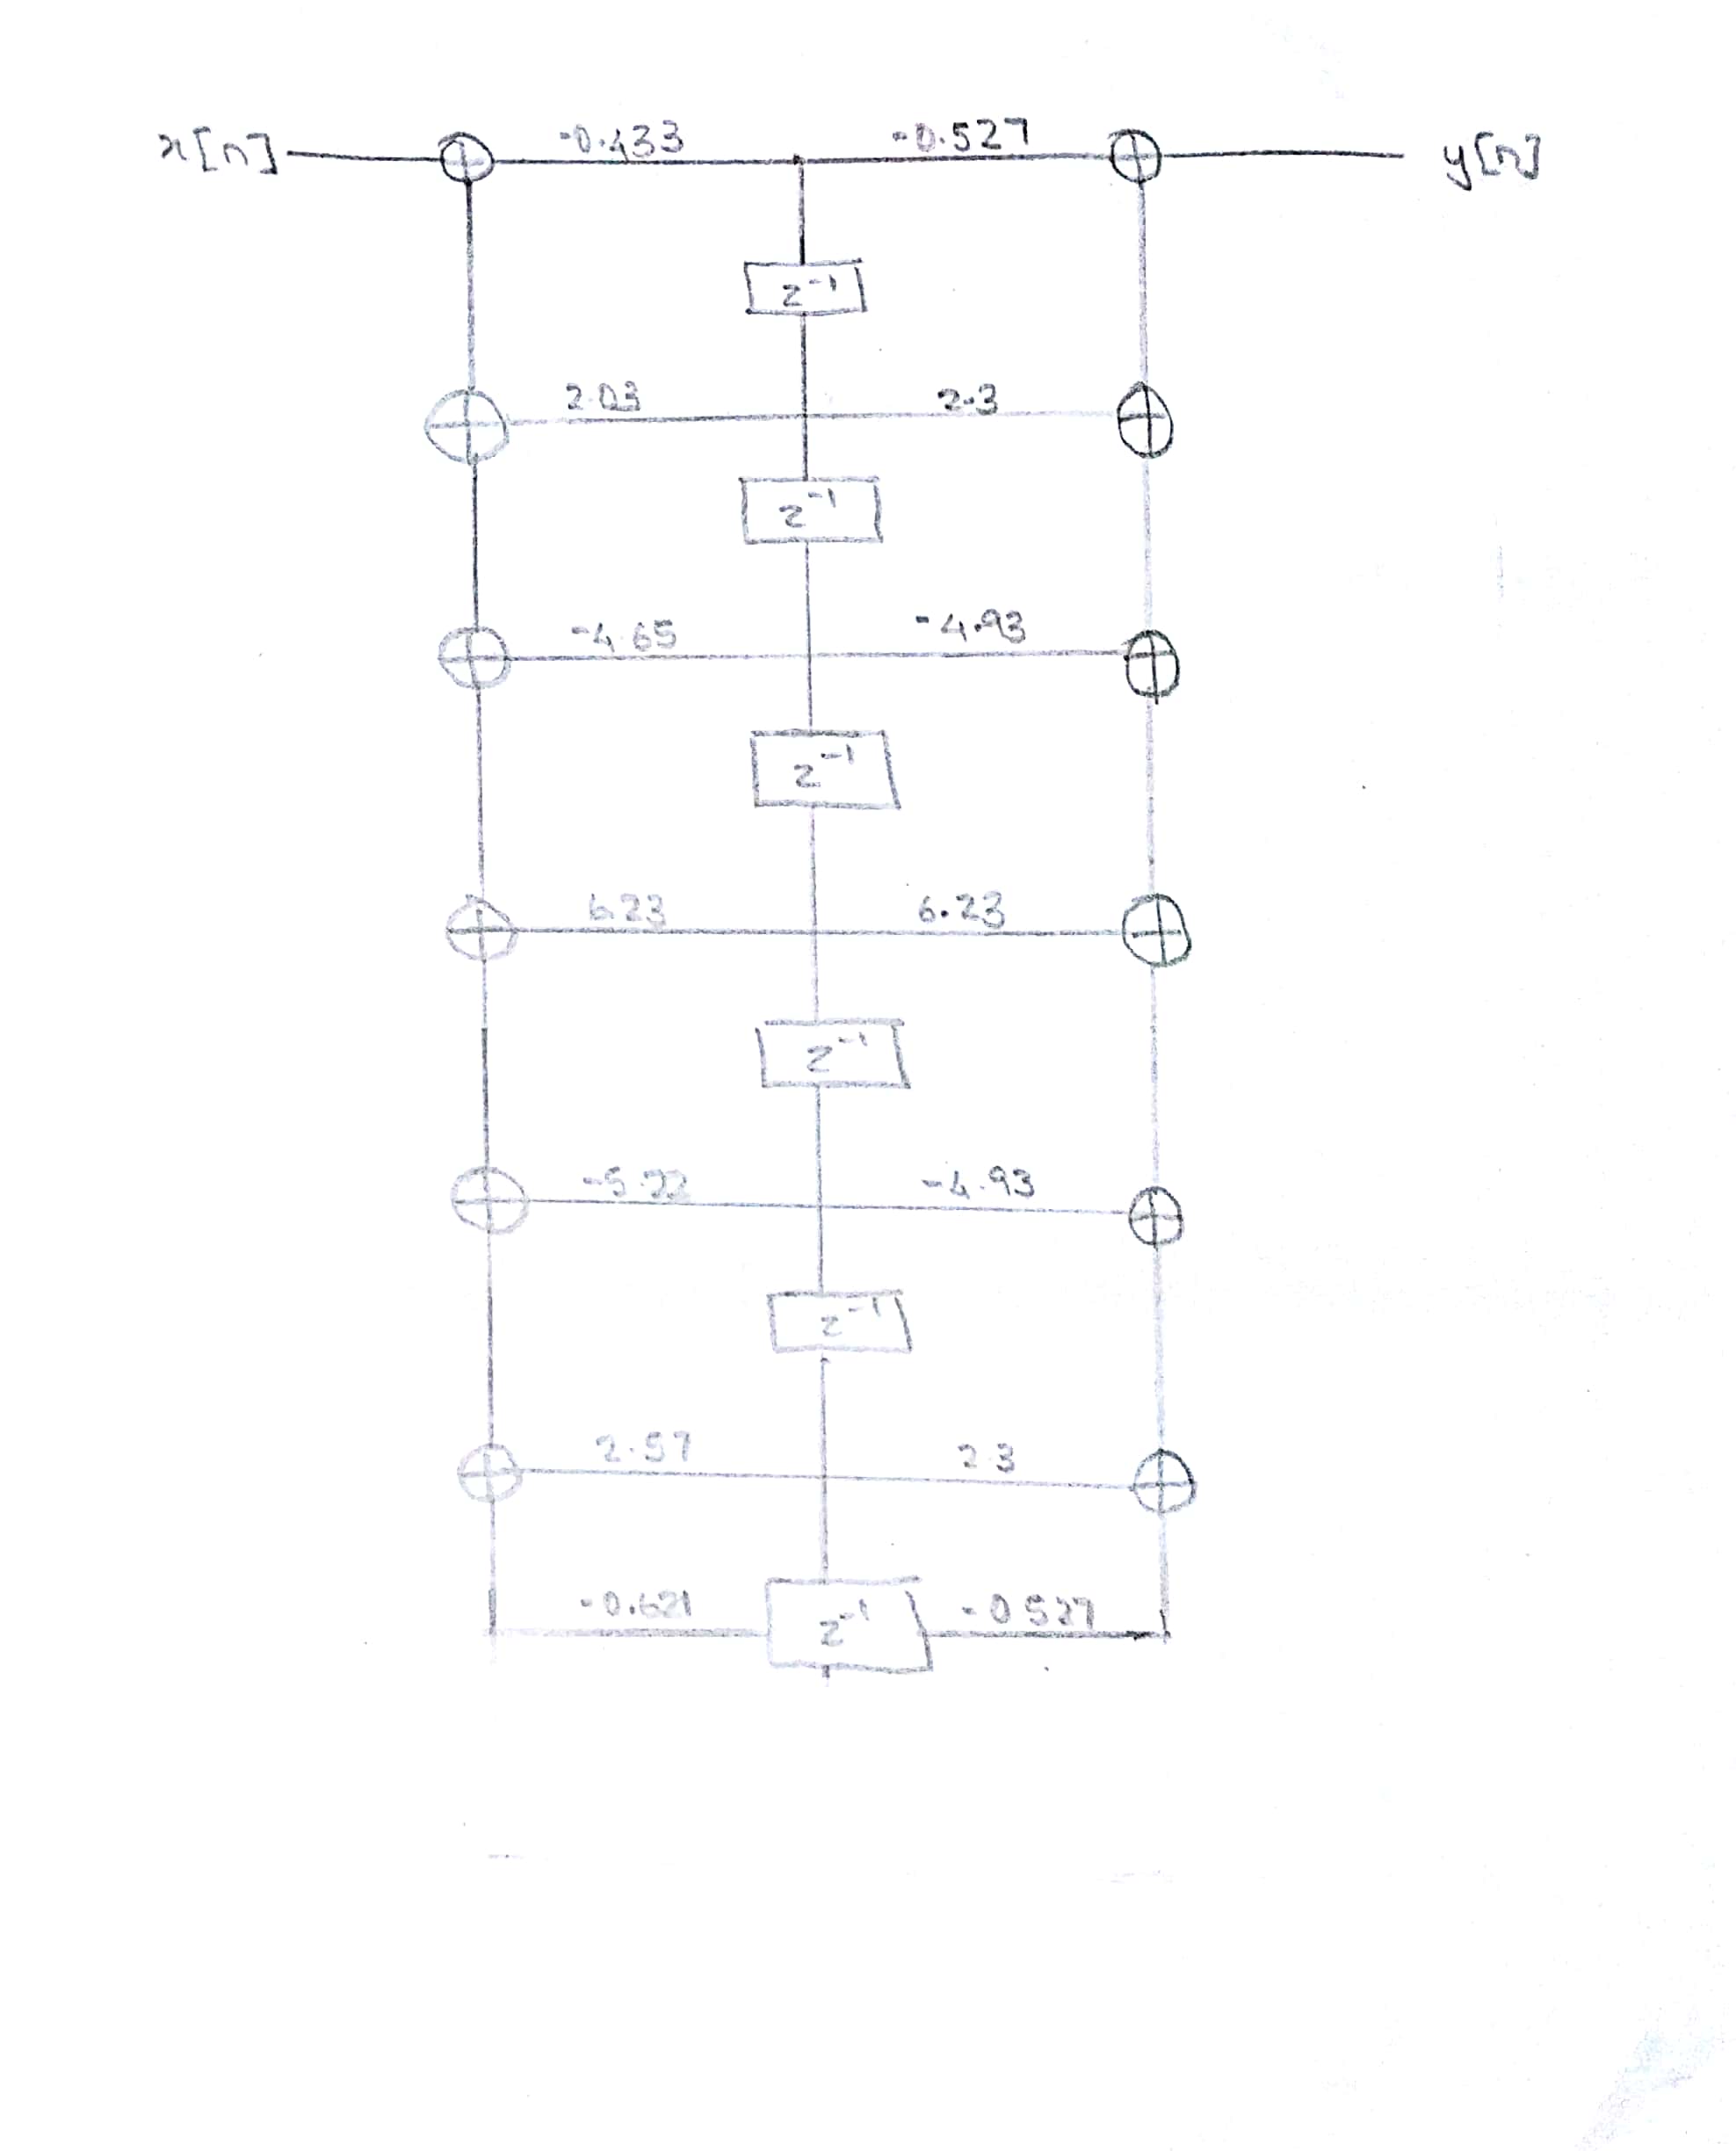 x[n] -0.433 -0.527 y[n]
z⁻¹
2.03 2.3
z⁻¹
-4.65 -4.93
z⁻¹
6.23 6.23
z⁻¹
-5.22 -4.93
z⁻¹
2.57 2.3
-0.621 z⁻¹ -0.527